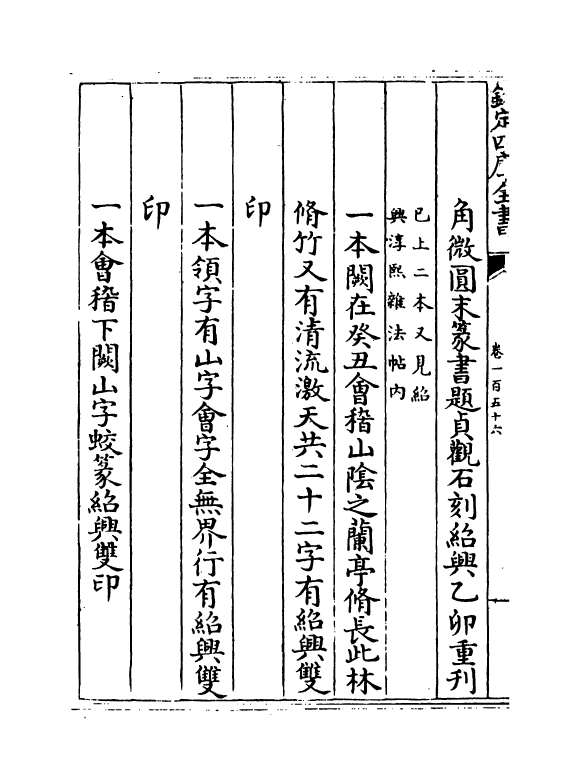 欽定四庫全書
卷一百五十六
角微圓末篆書題貞觀石刻紹興乙卯重刊
已上二本又見紹
興淳熙雜法帖內
一本闕在癸丑會稽山陰之蘭亭脩長此林
脩竹又有清流激天共二十二字有紹興雙
印
一本領字有山字會字全無界行有紹興雙
印
一本會稽下闕山字蛟篆紹興雙印